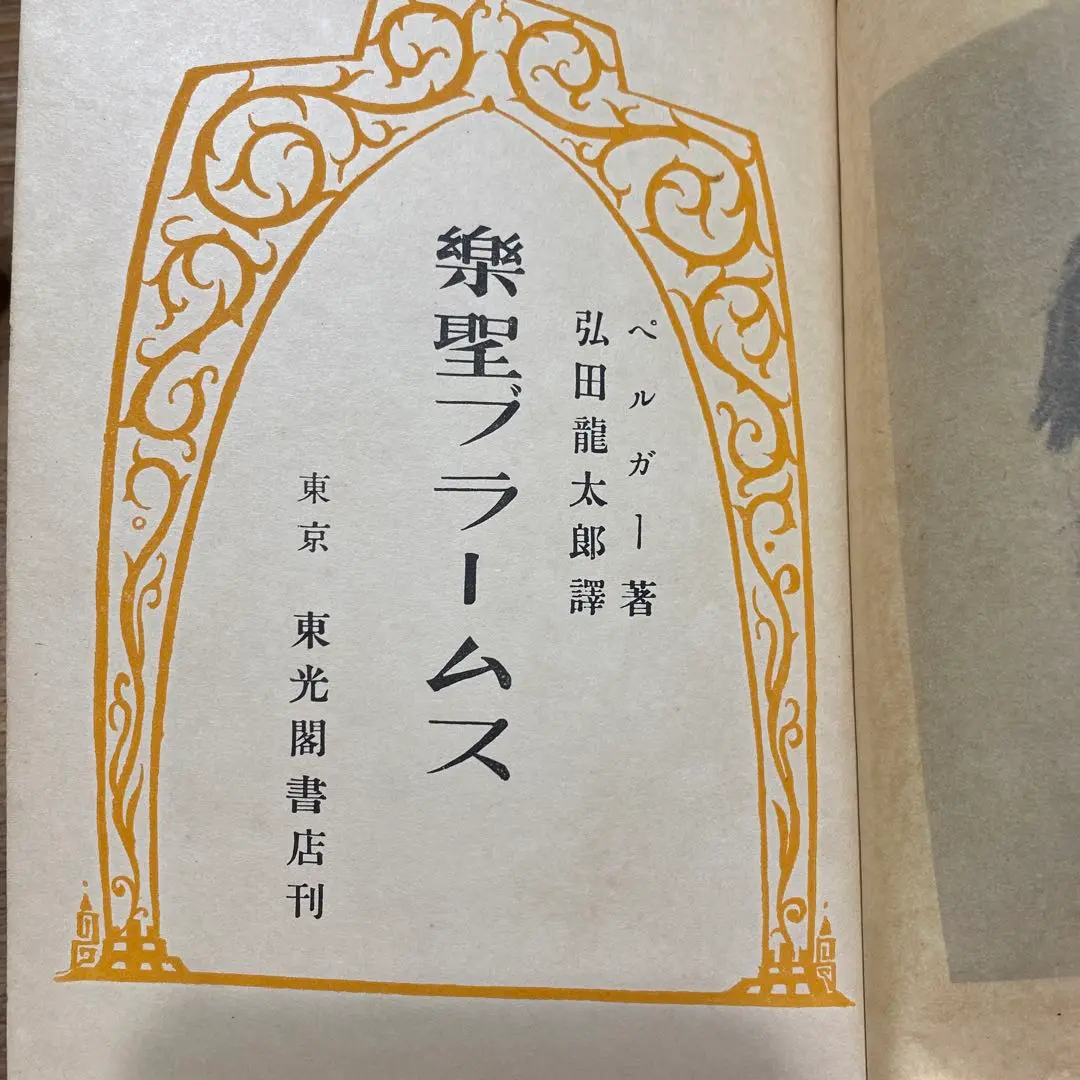 ペルガー著
弘田龍太郎譯
樂聖ブラームス
東京 東光閣書店刊